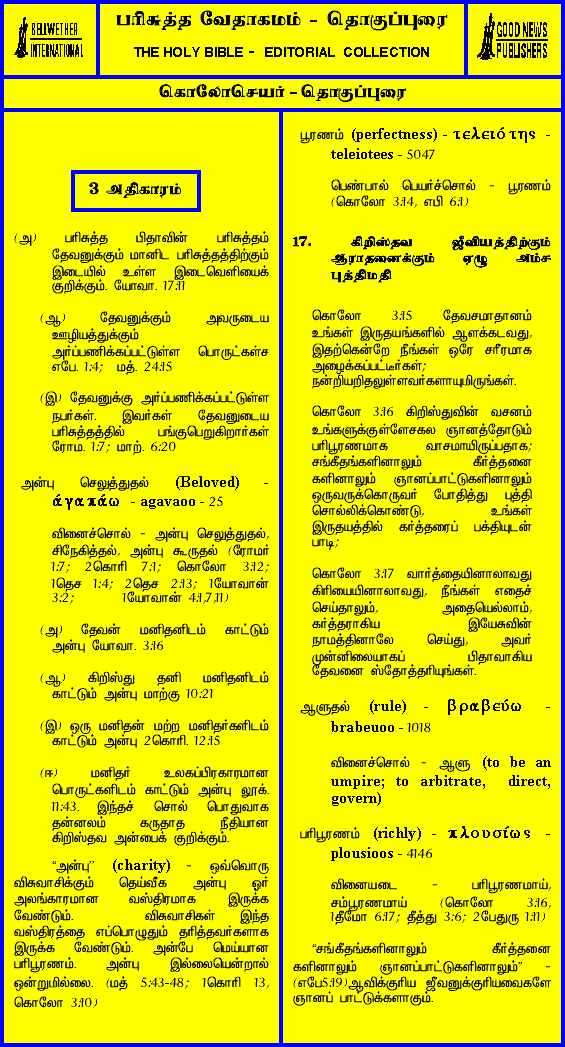 BELLWETHER
INTERNATIONAL
பரிசுத்த வேதாகமம் - தொகுப்புரை
THE HOLY BIBLE - EDITORIAL COLLECTION
GOOD NEWS
PUBLISHERS
கொலோசெயர் - தொகுப்புரை
3 அதிகாரம்
(அ) பரிசுத்த பிதாவின் பரிசுத்தம்
தேவனுக்கும் மானிட பரிசுத்தத்திற்கும்
இடையில் உள்ள இடைவெளியைக்
குறிக்கும். யோவா. 17:11
(ஆ) தேவனுக்கும் அவருடைய
ஊழியத்துக்கும்
அர்ப்பணிக்கப்பட்டுள்ள பொருட்கள்ச
எபே. 1:4; மத். 24:15
(இ) தேவனுக்கு அர்ப்பணிக்கப்பட்டுள்ள
நபர்கள். இவர்கள் தேவனுடைய
பரிசுத்தத்தில் பங்குபெறுகிறார்கள்
ரோம. 1:7; மாற். 6:20
அன்பு செலுத்துதல் (Beloved) -
άγαπάω - agavaoo - 25
வினைச்சொல் - அன்பு செலுத்துதல்,
சிநேகித்தல், அன்பு கூருதல் (ரோமர்
1:7; 2கொரி 7:1; கொலோ 3:12;
1தெச 1:4; 2தெச 2:13; 1யோவான்
3:2; 1யோவான் 4:1,7,11)
(அ) தேவன் மனிதனிடம் காட்டும்
அன்பு யோவா. 3:16
(ஆ) கிறிஸ்து தனி மனிதனிடம்
காட்டும் அன்பு மாற்கு 10:21
(இ) ஒரு மனிதன் மற்ற மனிதர்களிடம்
காட்டும் அன்பு 2கொரி. 12:15
(ஈ) மனிதர் உலகப்பிரகாரமான
பொருட்களிடம் காட்டும் அன்பு லூக்.
11:43. இந்தச் சொல் பொதுவாக
தன்னலம் கருதாத நீதியான
கிறிஸ்தவ அன்பைக் குறிக்கும்.
“அன்பு” (charity) - ஒவ்வொரு
விசுவாசிக்கும் தெய்வீக அன்பு ஓர்
அலங்காரமான வஸ்திரமாக இருக்க
வேண்டும். விசுவாசிகள் இந்த
வஸ்திரத்தை எப்பொழுதும் தரித்தவர்களாக
இருக்க வேண்டும். அன்பே மெய்யான
பரிபூரணம். அன்பு இல்லையென்றால்
ஒன்றுமில்லை. (மத் 5:43-48; 1கொரி 13,
கொலோ 3:10)
பூரணம் (perfectness) - τελειότης -
teleiotees - 5047
பெண்பால் பெயர்ச்சொல் - பூரணம்
(கொலோ 3:14, எபி 6:1)
17. கிறிஸ்தவ ஜீவியத்திற்கும்
ஆராதனைக்கும் ஏழு அம்ச
புத்திமதி
கொலோ 3:15 தேவசமாதானம்
உங்கள் இருதயங்களில் ஆளக்கடவது,
இதற்கென்றே நீங்கள் ஒரே சரீரமாக
அழைக்கப்பட்டீர்கள்;
நன்றியறிதலுள்ளவர்களாயுமிருங்கள்.
கொலோ 3:16 கிறிஸ்துவின் வசனம்
உங்களுக்குள்ளேசகல ஞானத்தோடும்
பரிபூரணமாக வாசமாயிருப்பதாக;
சங்கீதங்களினாலும் கீர்த்தனை
களினாலும் ஞானப்பாட்டுகளினாலும்
ஒருவருக்கொருவர் போதித்து புத்தி
சொல்லிக்கொண்டு, உங்கள்
இருதயத்தில் கர்த்தரைப் பக்தியுடன்
பாடி;
கொலோ 3:17 வார்த்தையினாலாவது
கிரியையினாலாவது, நீங்கள் எதைச்
செய்தாலும், அதையெல்லாம்,
கர்த்தராகிய இயேசுவின்
நாமத்தினாலே செய்து, அவர்
முன்னிலையாகப் பிதாவாகிய
தேவனை ஸ்தோத்தரியுங்கள்.
ஆளுதல் (rule) - βραβεύω -
brabeuoo - 1018
வினைச்சொல் - ஆளு (to be an
umpire; to arbitrate, direct,
govern)
பரிபூரணம் (richly) - πλουσίως -
plousioos - 4146
வினையடை - பரிபூரணமாய்,
சம்பூரணமாய் (கொலோ 3:16,
1தீமோ 6:17; தீத்து 3:6; 2பேதுரு 1:11)
“சங்கீதங்களினாலும் கீர்த்தனை
களினாலும் ஞானப்பாட்டுகளினாலும்” -
(எபே5:19)ஆவிக்குரிய ஜீவனுக்குரியவைகளே
ஞானப் பாட்டுக்களாகும்.